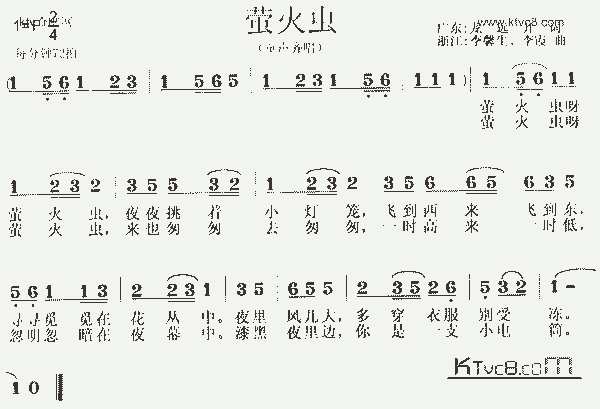 萤火虫
www.ktvc8.com
2
4
广东:龙 选 升 词
(童声齐唱)
浙江:李馨生、李霞 曲
(1 5 6 1 2 3 1 2 3 2 3 1 5 6 1 5 6 1 1 1) 1 5 6 1 1
萤 火 虫呀
萤 火 虫呀
1 2 3 2 3 5 5 3 2 1 2 3 2 3 5 6 6 5 6 3 5
萤 火 虫, 夜夜挑 着 小 灯 笼, 飞到西 来 飞到东,
萤 火 虫, 来也匆 匆 去 匆 匆, 一时高 来 一时低,
5 6 1 1 3 2 2 3 1 3 5 6 5 5 2 3 5 2 6 5 3 2 1 -
寻寻觅 觅在 花 丛 中。夜里 风儿大, 多 穿 衣服 别受 冻。
忽明忽 暗在 夜 幕 中。漆黑 夜里边, 你 是 一支 小电 筒。
KTvc8.com
1 0